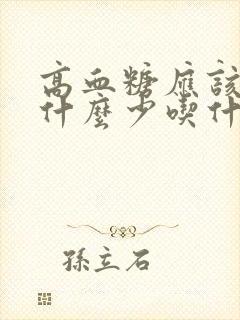 高血糖應該
什麼少喫什
孫立石